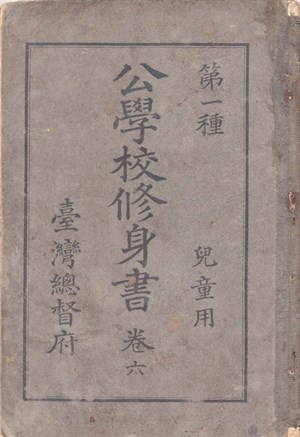 第一種 兒童用
公學校修身書 卷六
臺灣總督府